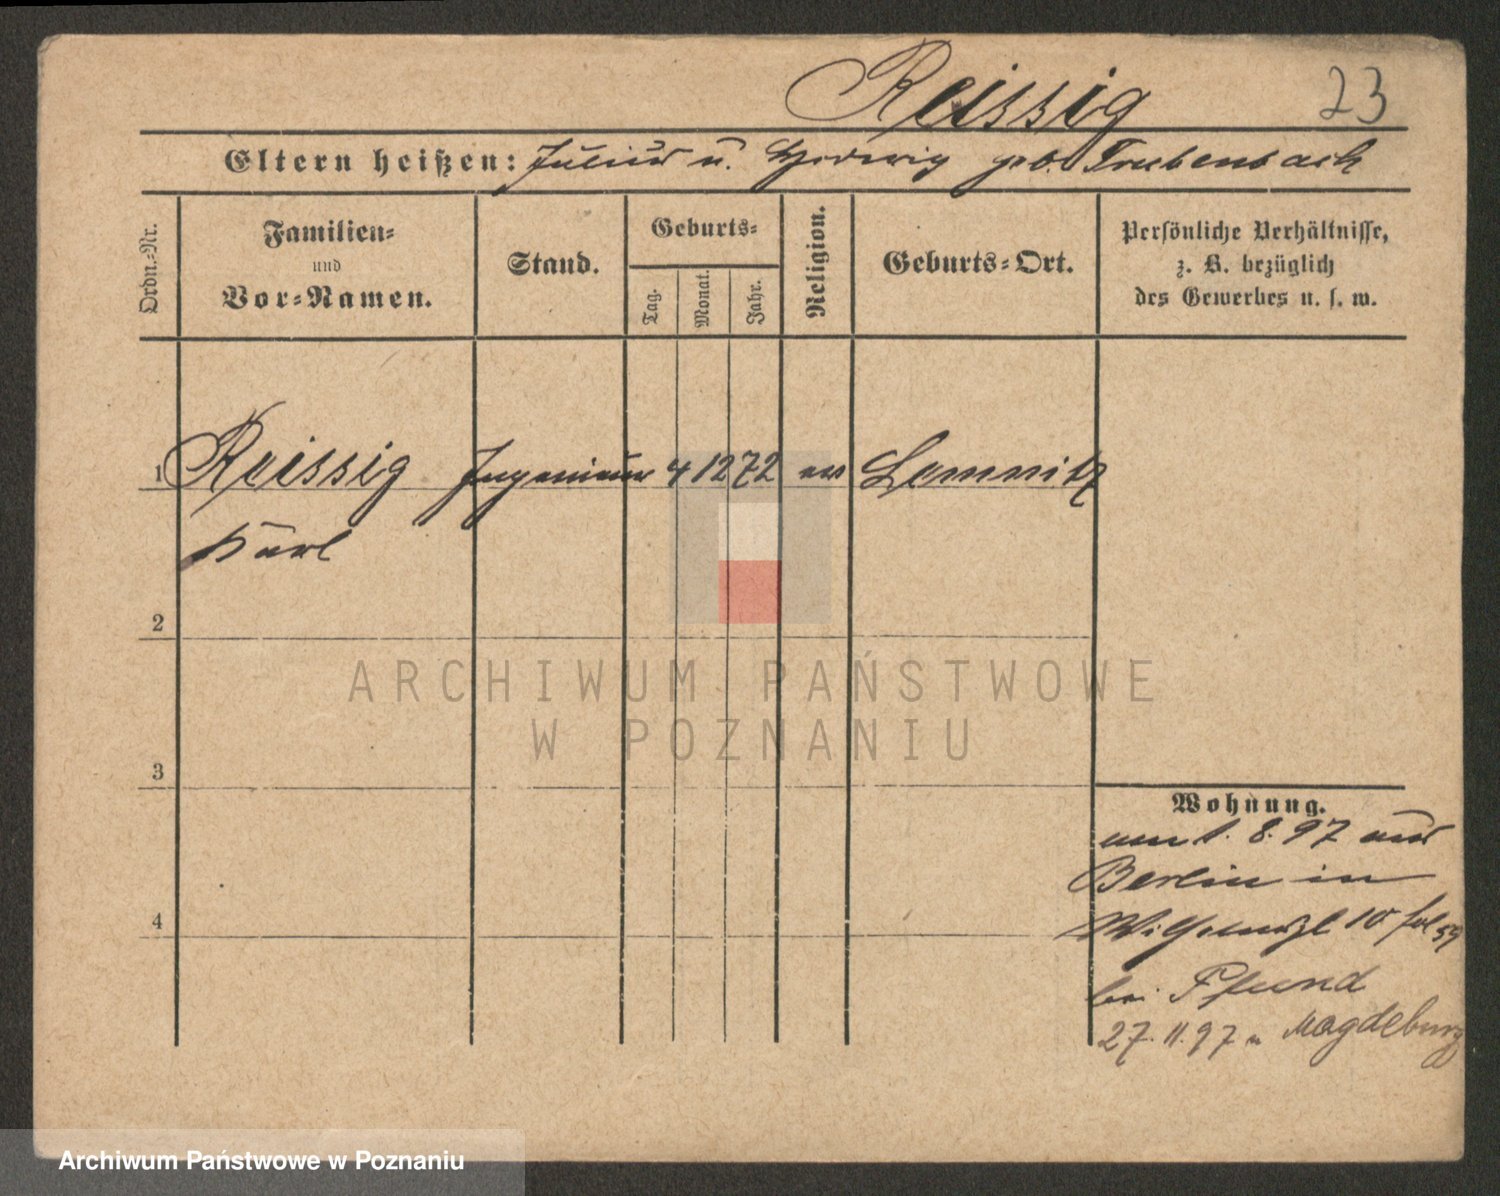 Reissig 23
Eltern heißen: Julius u. Hedwig geb. Trubenbach
Ordn.-Nr.
Familien-
und
Vor-Namen.
Stand.
Geburts-
Tag.
Monat.
Jahr.
Religion.
Geburts-Ort.
Persönliche Verhältnisse,
z. B. bezüglich
des Gewerbes u. s. w.
1 Reissig Ingenieur 4 12 72 ev Lomnitz
Karl
2
ARCHIWUM PAŃSTWOWE
W POZNANIU
3
Wohnung.
am 1. 8. 97 aus
Berlin in
4
10
bei Pfund
27. 11. 97 n Magdeburg
Archiwum Państwowe w Poznaniu